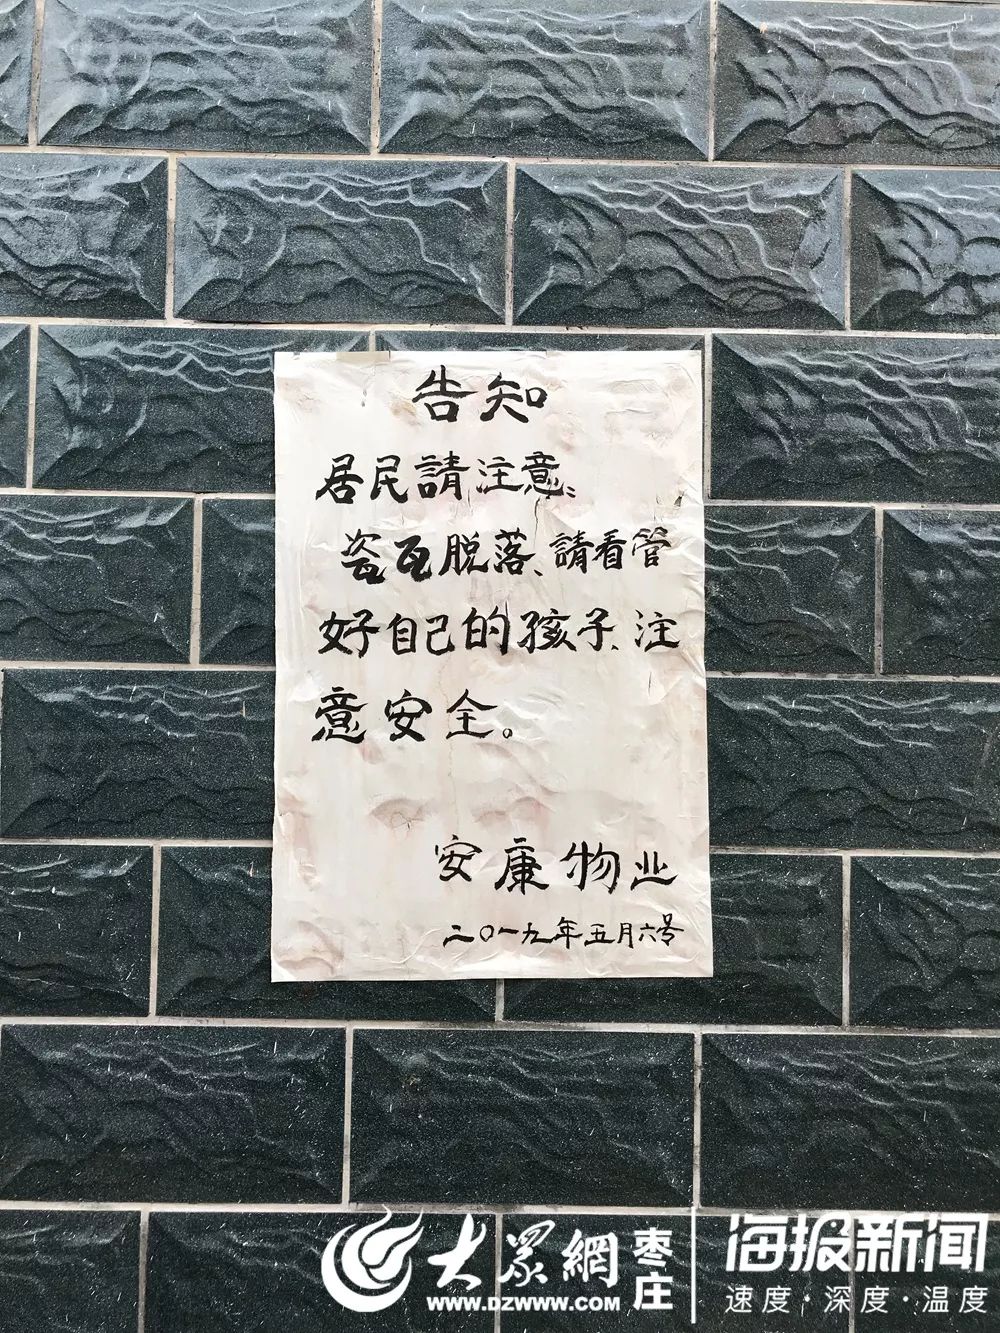 告知
居民請注意、
瓷瓦脱落、請看管
好自己的孩子、注
意安全。
安康物业
二〇一九年五月六号
大眾網 枣庄
WWW.DZWWW.COM
海报新闻
速度·深度·温度